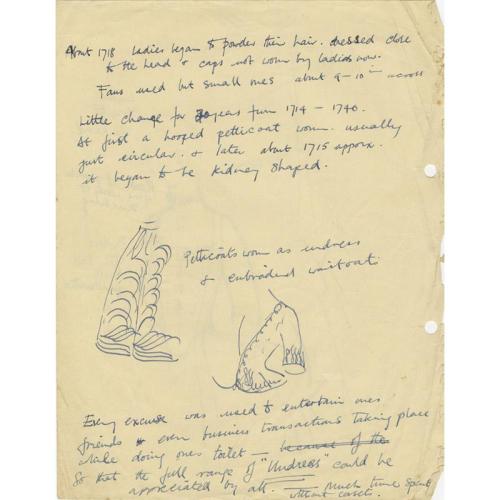 About 1718 ladies began to powder their hair. dressed close
to the head & caps not worn by ladies now.
Fans used but small ones about 9-10 in across
Little change for years from 1714 - 1740.
At first a hooped petticoat worn. usually
just circular. & later about 1715 approx.
it began to be kidney shaped.
Petticoats worn as undress
& embroidered waistcoats.
Every excuse was used to entertain ones
friends & even business transactions taking place
while doing ones toilet because of the
So that the full range of "Undress" could be
appreciated by all. Much time spent
without corsets.